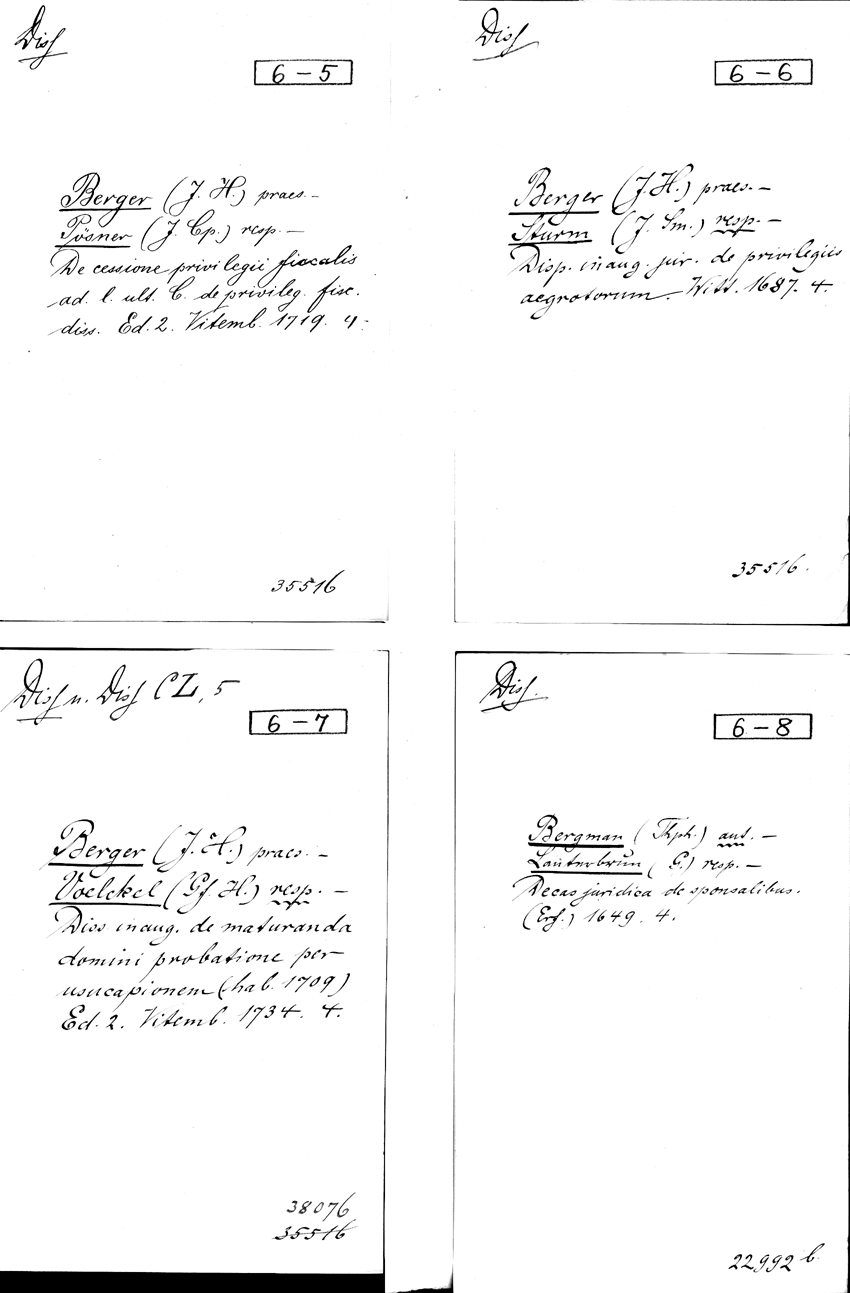 Diss
6 – 5
Berger (J. H.) praes. –
Pösner (J. Cp.) resp. –
De cessione privilegii fiscalis
ad. l. ult. C. de privileg. fisc.
diss. Ed. 2. Vitemb. 1719. 4.
35516
Diss
6 – 6
Berger (J. H.) praes. –
Sturm (J. Sm.) resp. –
Disp. inaug. jur. de privilegiis
aegrotorum. Witt. 1687. 4.
35516.
Diss u. Diss CZ, 5
6 – 7
Berger (J. H.) praes. –
Voelckel (Gf. H.) resp. –
Diss inaug. de maturanda
domini probatione per
usucapionem (hab. 1709)
Ed. 2. Vitemb. 1734. 4.
38076
35516
Diss.
6 – 8
Bergman (Thph.) aut. –
Lauterbrun (G.) resp. –
Decas juridica de sponsalibus.
(Erf.) 1649. 4.
22992 b.